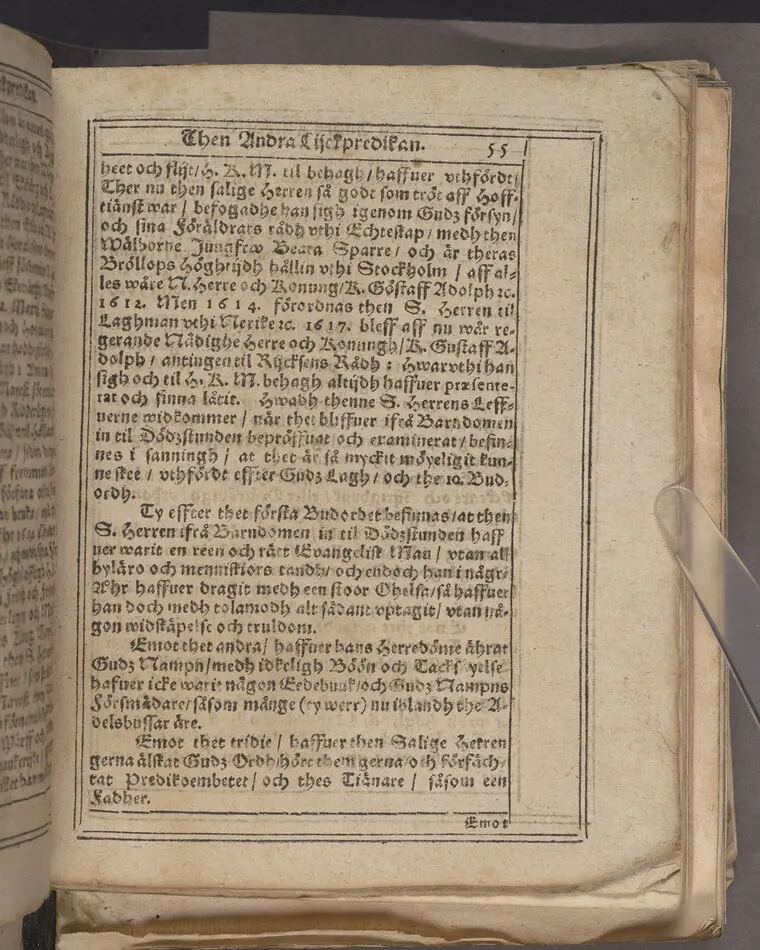 Then Andra Lijckpredikan. 55
heet och flijt/ H. K. M. til behagh/ haffuer vthfördt/
Ther nu then salige Herren så godt som tröt aff Hoff-
tiänst war / befogadhe han sigh igenom Gudz försyn/
och sina Föräldrars rådh vthi Echteskap/ medh then
Wälborne Jungfrw Beata Sparre/ och är theras
Bröllops Höghtijdh hållin vthi Stockholm / aff al-
les wåre N. Herre och Konung/ K. Göstaff Adolph ꝛc.
1612. Men 1614. förordnas then S. Herren til
Laghman vthi Nerike ꝛc. 1617. bleff aff nu wår re-
gerande Nådighe Herre och Konungh/ K. Gustaff A-
dolph / antingen til Rijcksens Rådh : Hwar vthi han
sigh och til H. K. M. behagh altijdh haffuer præsente-
rat och finna låtit. Hwadh thenne S. Herrens Leff-
uerne widkommer / när thet bliffuer ifrå Barndomen
in til Dödzstunden bepröffuat och examinerat / befin-
nes i sanningh / at thet är så myckit möyeligit kun-
ne skee / vthfördt effter Gudz Lagh / och the 10. Bud-
ordh.
Ty effter thet första Budordet befinnas/ at then
S. Herren ifrå Barndomen in til Dödzstunden haff
uer warit en reen och rätt Evangelisk Man / vtan all
bylära och menniskiors tandh/ och endoch han i någr/
Åhr haffuer dragit medh een stoor Ohelsa/ så haffuer
han doch medh tolamodh alt sådant vptagit/ vtan nå-
gon widskäpelse och truldom.
Emot thet andra/ haffuer hans Herredöme ährat
Gudz Nampn/ medh idkeligh Böön och Tackseyelse
hafuer icke warit någon Eedebuuk/ och Gudz Nampns
Försmädare/ såsom månge (ty werr) nu iblandh the A-
delsbussar äre.
Emot thet tridie / haffuer then Salige Herren
gerna älskat Gudz Ordh/ hört them gerna/ och förfäch-
tat Predikoembetet / och thes Tiänare / såsom een
Fadher.
Emot